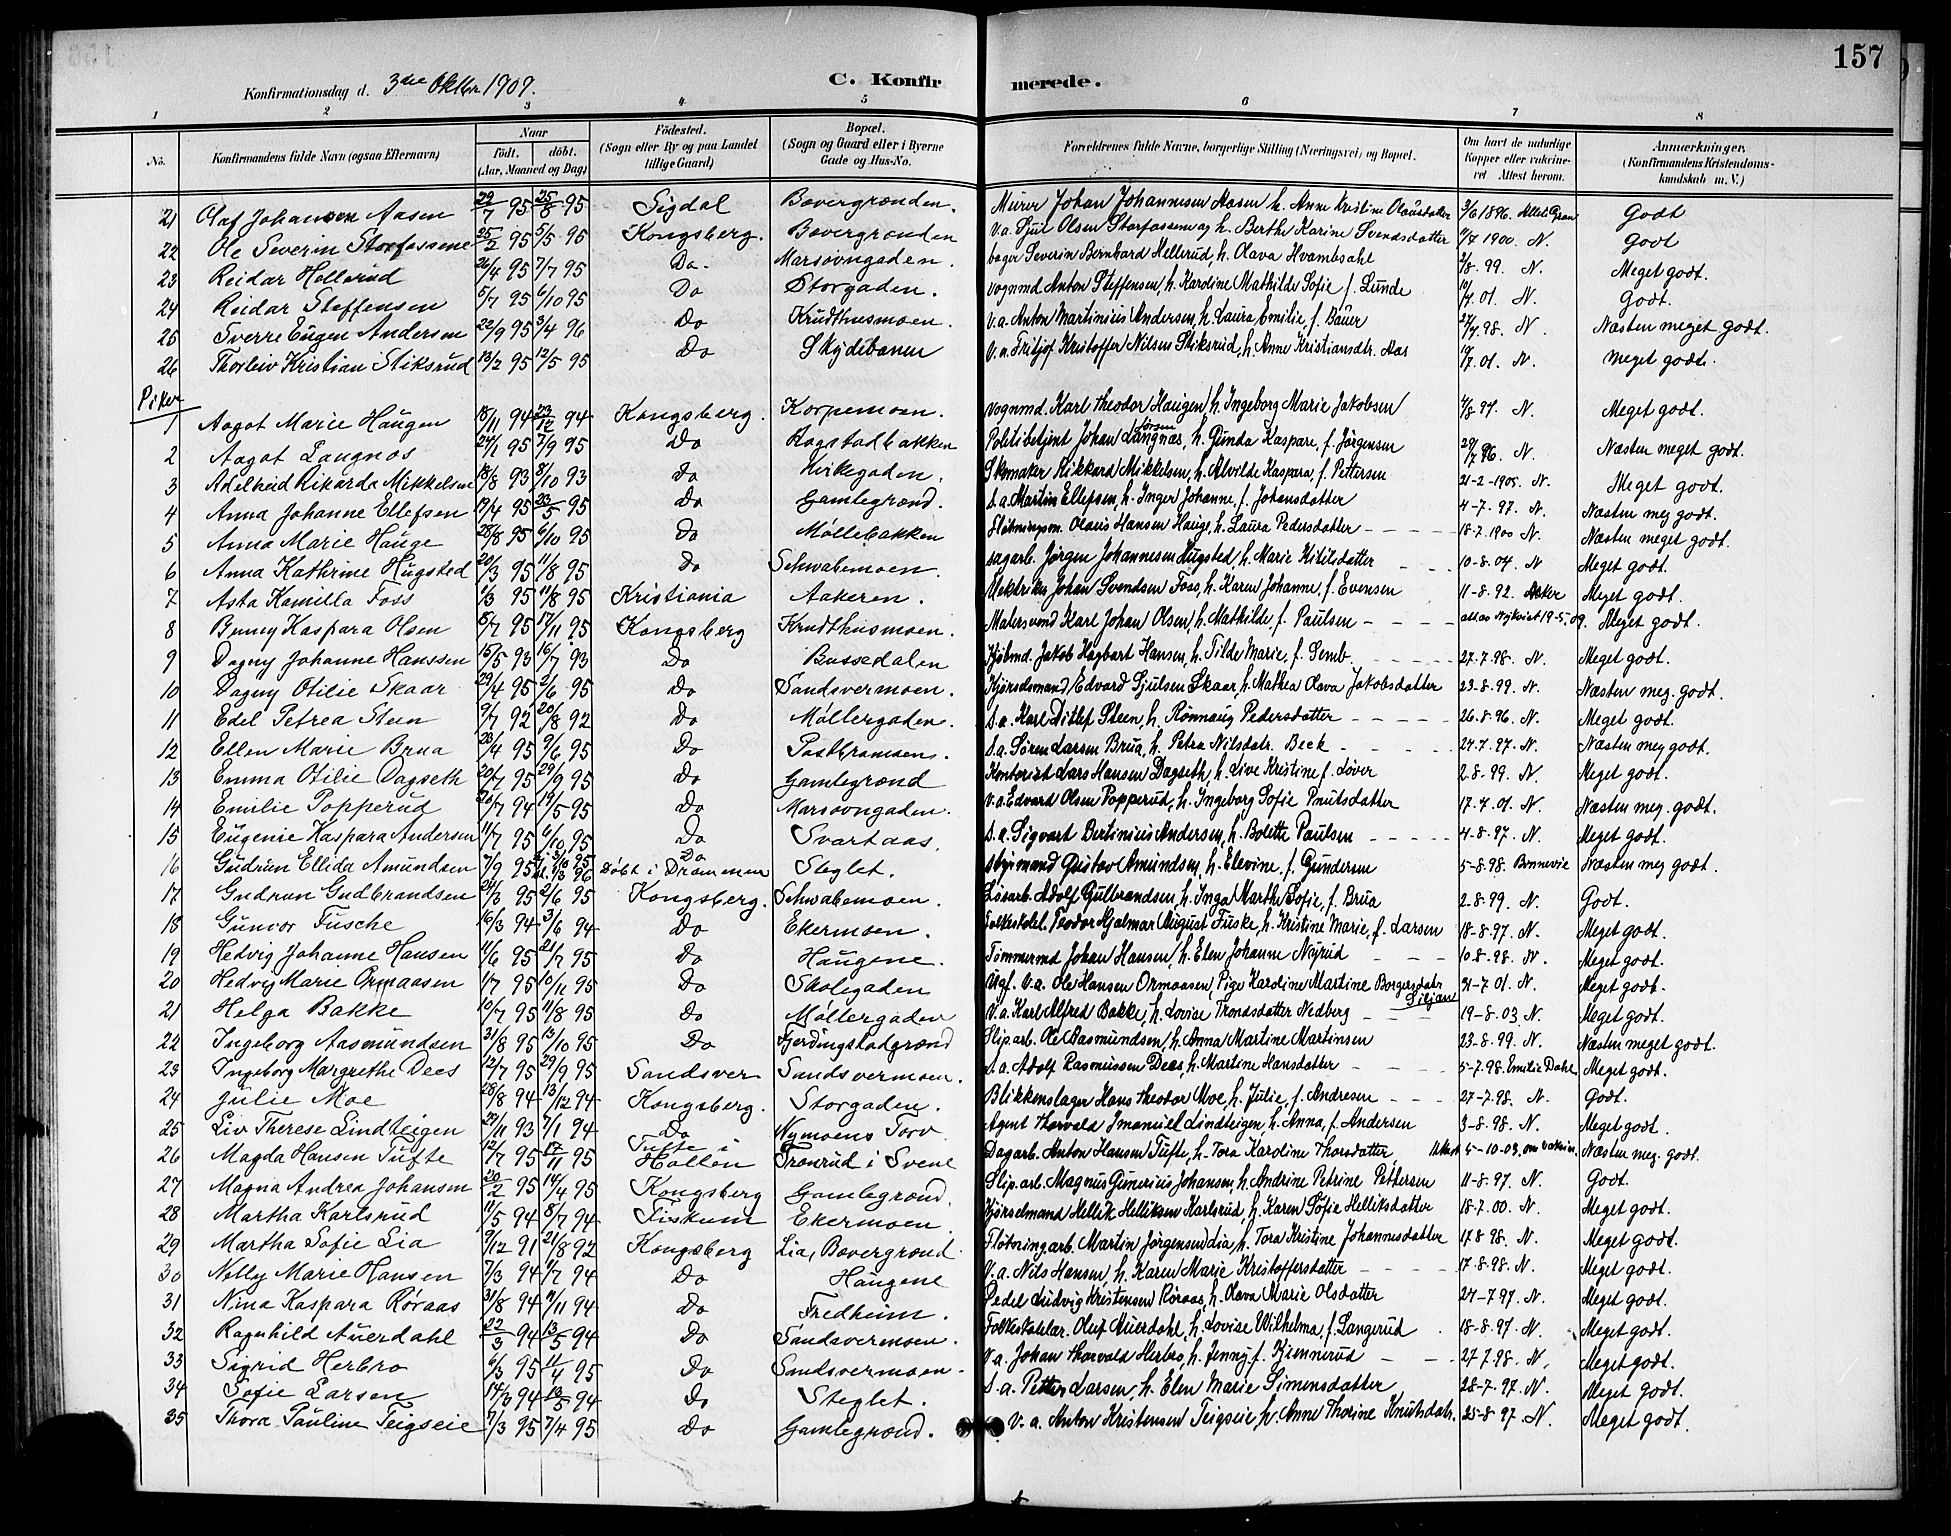 157
Konfirmationsdag d. 3die Oktbr. 1909.
C. Konfirmerede.
1 2 3 4 5 6 7 8
No. Konfirmandens fulde Navn (ogsaa Efternavn) Naar födt. döbt. (Aar, Maaned og Dag) Födested. (Sogn eller By og paa Landet tillige Gaard) Bopæl. (Sogn og Gaard eller i Byerne Gade og Hus-No. Forældrenes fulde Navne, borgerlige Stilling (Næringsvei) og Bopæl. Om havt de naturlige Kopper eller vakcineret Attest herom. Anmærkninger. (Konfirmandens Kristendomskundskab m. V.)
21 Olaf Johansen Aasen 29/7 95 25/8 95 Sigdal Bævergrænden. Murer Johan Johannesen Aasen h. Anne Kristine Olausdatter 3/6 1896. Godt
22 Ole Severin Storfossene 25/2 95 5/5 95 Kongsberg. Bævergrænden V.a. Sjul Olsen Storfossene og h. Berthe Karine Svendsdatter 11/7 1900. N. Godt
23 Reidar Hellerud 26/4 95 7/7 95 Do. Marsovngaden. bager Severin Bernhard Hellerud, h. Olava Hvambsahl 2/8. 99. N. Meget godt.
24 Reidar Steffensen 5/7 95 6/10 95 Do Storgaden. vognmd Anton Steffensen, h. Karoline Mathilde Sofie f. Lunde 10/7. 01. N. Godt.
25 Sverre Eugen Andersen 22/9 95 3/4 96 Do Krudthusmoen. V.a. Anton Martinius Andersen, h. Laura Emilie, f. Bauer 27/7. 98. N. Næsten meget godt.
26 Thorleiv Kristian Stiksrud 13/2 95 12/5 95 Do Skydebanen V.a. Fritjof Kristoffer Nilsen Stiksrud, h. Anne Kristiansdtr. Aas 19/7. 01. N. Meget godt.
Piker
1 Aagot Marie Haugen 18/11 94 23/12 94 Kongsberg. Korpemoen. vognmd. Karl Theodor Haugen, h. Ingeborg Marie Jakobsen 4/8 97. N. Meget godt.
2 Aagot Langnæs 24/7 95 7/9 95 Do Bagstadbakken Politibetjent Johan Larsen Langnæs, h. Gunda Kaspare, f. Jörgensen 29/7 96. N. Næsten meget godt.
3 Adelheid Rikarda Mikkelsen 18/8 93 8/10 93 Do Kirkegaden. Skomaker Rikkard Mikkelsen, h. Alvilde Kaspara, f. Pettersen 21-2-1905. N. Meget godt.
4 Anna Johanne Ellefsen 19/4 95 23/5 95 Do Gamlegrænd. S.a. Martin Ellefsen, h. Inger Johanne, f. Johansdatter 4-7. 97. N. Næsten meg godt.
5 Anna Marie Hauge 28/8 95 6/10 95 Do Møllebakken Fløtningsm. Olaus Hansen Hauge, h. Laura Pedersdatter 18-7. 1900 N. Næsten meget godt.
6 Anna Kathrine Hugsted 20/3 95 11/8 95 Do Schwabemoen. sagarb. Jørgen Johannesen Hugsted h. Marie Kittilsdatter 10-8. 04. N Meget godt.
7 Asta Kamilla Foss 1/3 95 11/8 95 Kristiania Aakeren. Elektriker Johan Svendsen Foss, h. Karen Johanne, f. Evensen 11-8. 92. Aker Meget godt.
8 Benny Kaspara Olsen 15/7 95 17/11 95 Kongsberg Krudthusmoen. Malersvend Karl Johan Olsen, h. Mathilde, f. Paulsen 19-5. 09. Meget godt.
9 Dagny Johanne Hanssen 15/5 93 16/7 93 Do Bussedalen Kjöbmd. Jakob Hagbart Hansen, h. Tilde Marie, f. Semb 27-7. 98. N. Meget godt.
10 Dagny Otilie Skaar 29/4 95 2/6 95 Do Sandsvermoen. Kjørselsmand Edvard Sjulsen Skaar, h. Mathea Olava Jakobsdatter 23-8. 99. N. Næsten meg. godt.
11 Edel Petrea Steen 9/7 92 20/8 92 Do Møllergaden. S.a. Karl Ditlef Steen, h. Rønnaug Pedersdatter 26-8. 96. N. Meget godt.
12 Ellen Marie Brua 23/4 95 9/6 95 Do S.a. Søren Larsen Brua, h. Petra Nilsdatr. Beck 27-7. 97. N. Næsten meg godt.
13 Emma Otilie Dagseth 20/7 95 29/9 95 Do Gamlegrænd Kontorist Lars Hansen Dagseth, h. Live Kristine f. Løver 2-8. 99. N. Meget godt.
14 Emilie Popperud 20/7 94 19/5 95 Do Marsovngaden. V.a. Edvard Olsen Popperud, h. Ingeborg Sofie Knutsdatter 17. 7. 01. N. Næsten meg. godt.
15 Eugenie Kaspara Andersen 11/7 95 6/10 95 Do Svartaas. S.a. Sigvart Bertinius Andersen, h. Bolette Paulsen 4-8. 97. N. Meget godt.
16 Gudrun Ellida Amundsen 7/9 95 Do døbt i Drammen Steglet. Styrmand Gustav Amundsen, h. Elevine, f. Gundersen 5-8. 98. Bonnevie Næsten meg godt.
17 Gudrun Gudbrandsen 24/3 95 2/6 95 Kongsberg. Schwabemoen. Løsarb. Adolf Gulbrandsen, h. Inga Marthe Sofie, f. Brua 2-8. 99. N. Godt.
18 Gunvor Fusche 16/3 94 3/6 94 Do Ekermoen. Teodor Hjalmar August Fuske, h. Kristine Marie, f. Larsen 18-8. 97. N. Meget godt.
19 Hedvig Johanne Hansen 11/6 95 21/7 95 Do Haugene. Tømmermd Johan Hansen, h. Elen Johanne Nyrud 10-8. 98. N. Meget godt.
20 Hedvig Marie Ormaasen 1/7 95 10/11 95 Do Skolegaden Ugf. V.a. Ole Hansen Ormaasen, Pige Karoline Martine Borgersdatr Siljan 21-7 01. N. Meget godt.
21 Helga Bakke 10/7 95 11/8 95 Do Møllergaden V.a. Karl Alfred Bakke, h. Lovise Trondsdatter Nedberg 19-8. 03. N. Meget godt.
22 Ingeborg Aasmundsen 31/8 95 13/10 95 Do Gjerdingstadgrænd Sliparb. Ole Aasmundsen, h. Anna Martine Martinsen 23-8. 99. N. Næsten meget godt.
23 Ingeborg Margrethe Dees 12/7 95 29/9 95 Sandsver Sandsvermoen. S.a. Adolf Rasmussen Dees, h. Martine Hansdatter 5-7. 98. Emilie Dahl Meget godt.
24 Julie Moe 28/8 94 13/12 94 Kongsberg. Storgaden. Blikkenslager Hans Theodor Moe, h. Julie, f. Andresen 27-7-98. N. Godt.
25 Liv Therese Lindteigen 22/11 93 7/1 94 Do Nymoens Torv Agent Thorvald Imanuel Lindteigen, h. Anna, f. Andersen 3-8. 98. N. Meget godt.
26 Magda Hansen Tufte 12/7 95 17/11 95 Tufte i Hollen Tronrud i Svene Dagarb. Anton Hansen Tufte, h. Tora Karoline Thorsdatter 5-10-03. om vakcin. Næsten meg. godt.
27 Magna Andrea Johansen 20/2 95 14/4 95 Kongsberg Gamlegrænd. Slip.arb. Magnus Gunerius Johansen, h. Andrine Petrine Pettersen 11-8. 97. N. Godt.
28 Martha Karlsrud 11/5 94 8/7 94 Fiskum Ekermoen. Kjørselmand Hellik Helliksen Karlsrud, h. Karen Sofie Helliksdatter 18-7. 00. N. Meget godt.
29 Martha Sofie Lia 9/12 91 21/8 92 Kongsberg Lia, Bævergrænd. Fløtningarb. Martin Jørgensen Lia, h. Tora Kristine Johannesdatter 17. 8 98. N. Meget godt.
30 Nelly Marie Hansen 7/3 94 1/7 94 Do Haugene V.a. Nils Hansen, h. Karen Marie Kristoffersdatter 17. 8. 98. N. Meget godt.
31 Nina Kaspara Røraas 31/8 94 11/11 94 Do Fredheim. Pedel Ludvig Kristensen Røraas, h. Olava Marie Olsdatter 27-7 97. N. Meget godt.
32 Ragnhild Auerdahl 22/3 94 13/5 94 Do Sandsvermoen. Folkeskolelær. Oluf Auerdahl, h. Lovise Wilhelma, f. Langerud 18-8. 97. N. Meget godt.
33 Sigrid Herbro 6/3 95 11/4 95 Do Sandsvermoen. V.a. Johan Thorvald Herbro, h. Jenny f. Kjennerud 27 7. 98. N. Meget godt.
34 Sofie Larsen 14/3 94 13/5 94 Do Steglet. S.a. Petter Larsen, h. Elen Marie Simensdatter 28-7. 97. N. Meget godt.
35 Thora Pauline Teigseie 7/3 95 7/4 95 Do Gamlegrænd. V.a. Anton Kristensen Teigseie h. Anne Thorine Knutsdatr. 25-8 97 N. Meget godt.